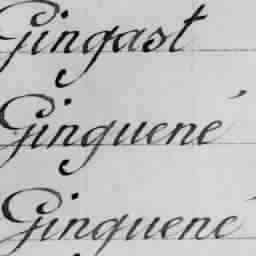 Gingast
Ginguené
Ginguené